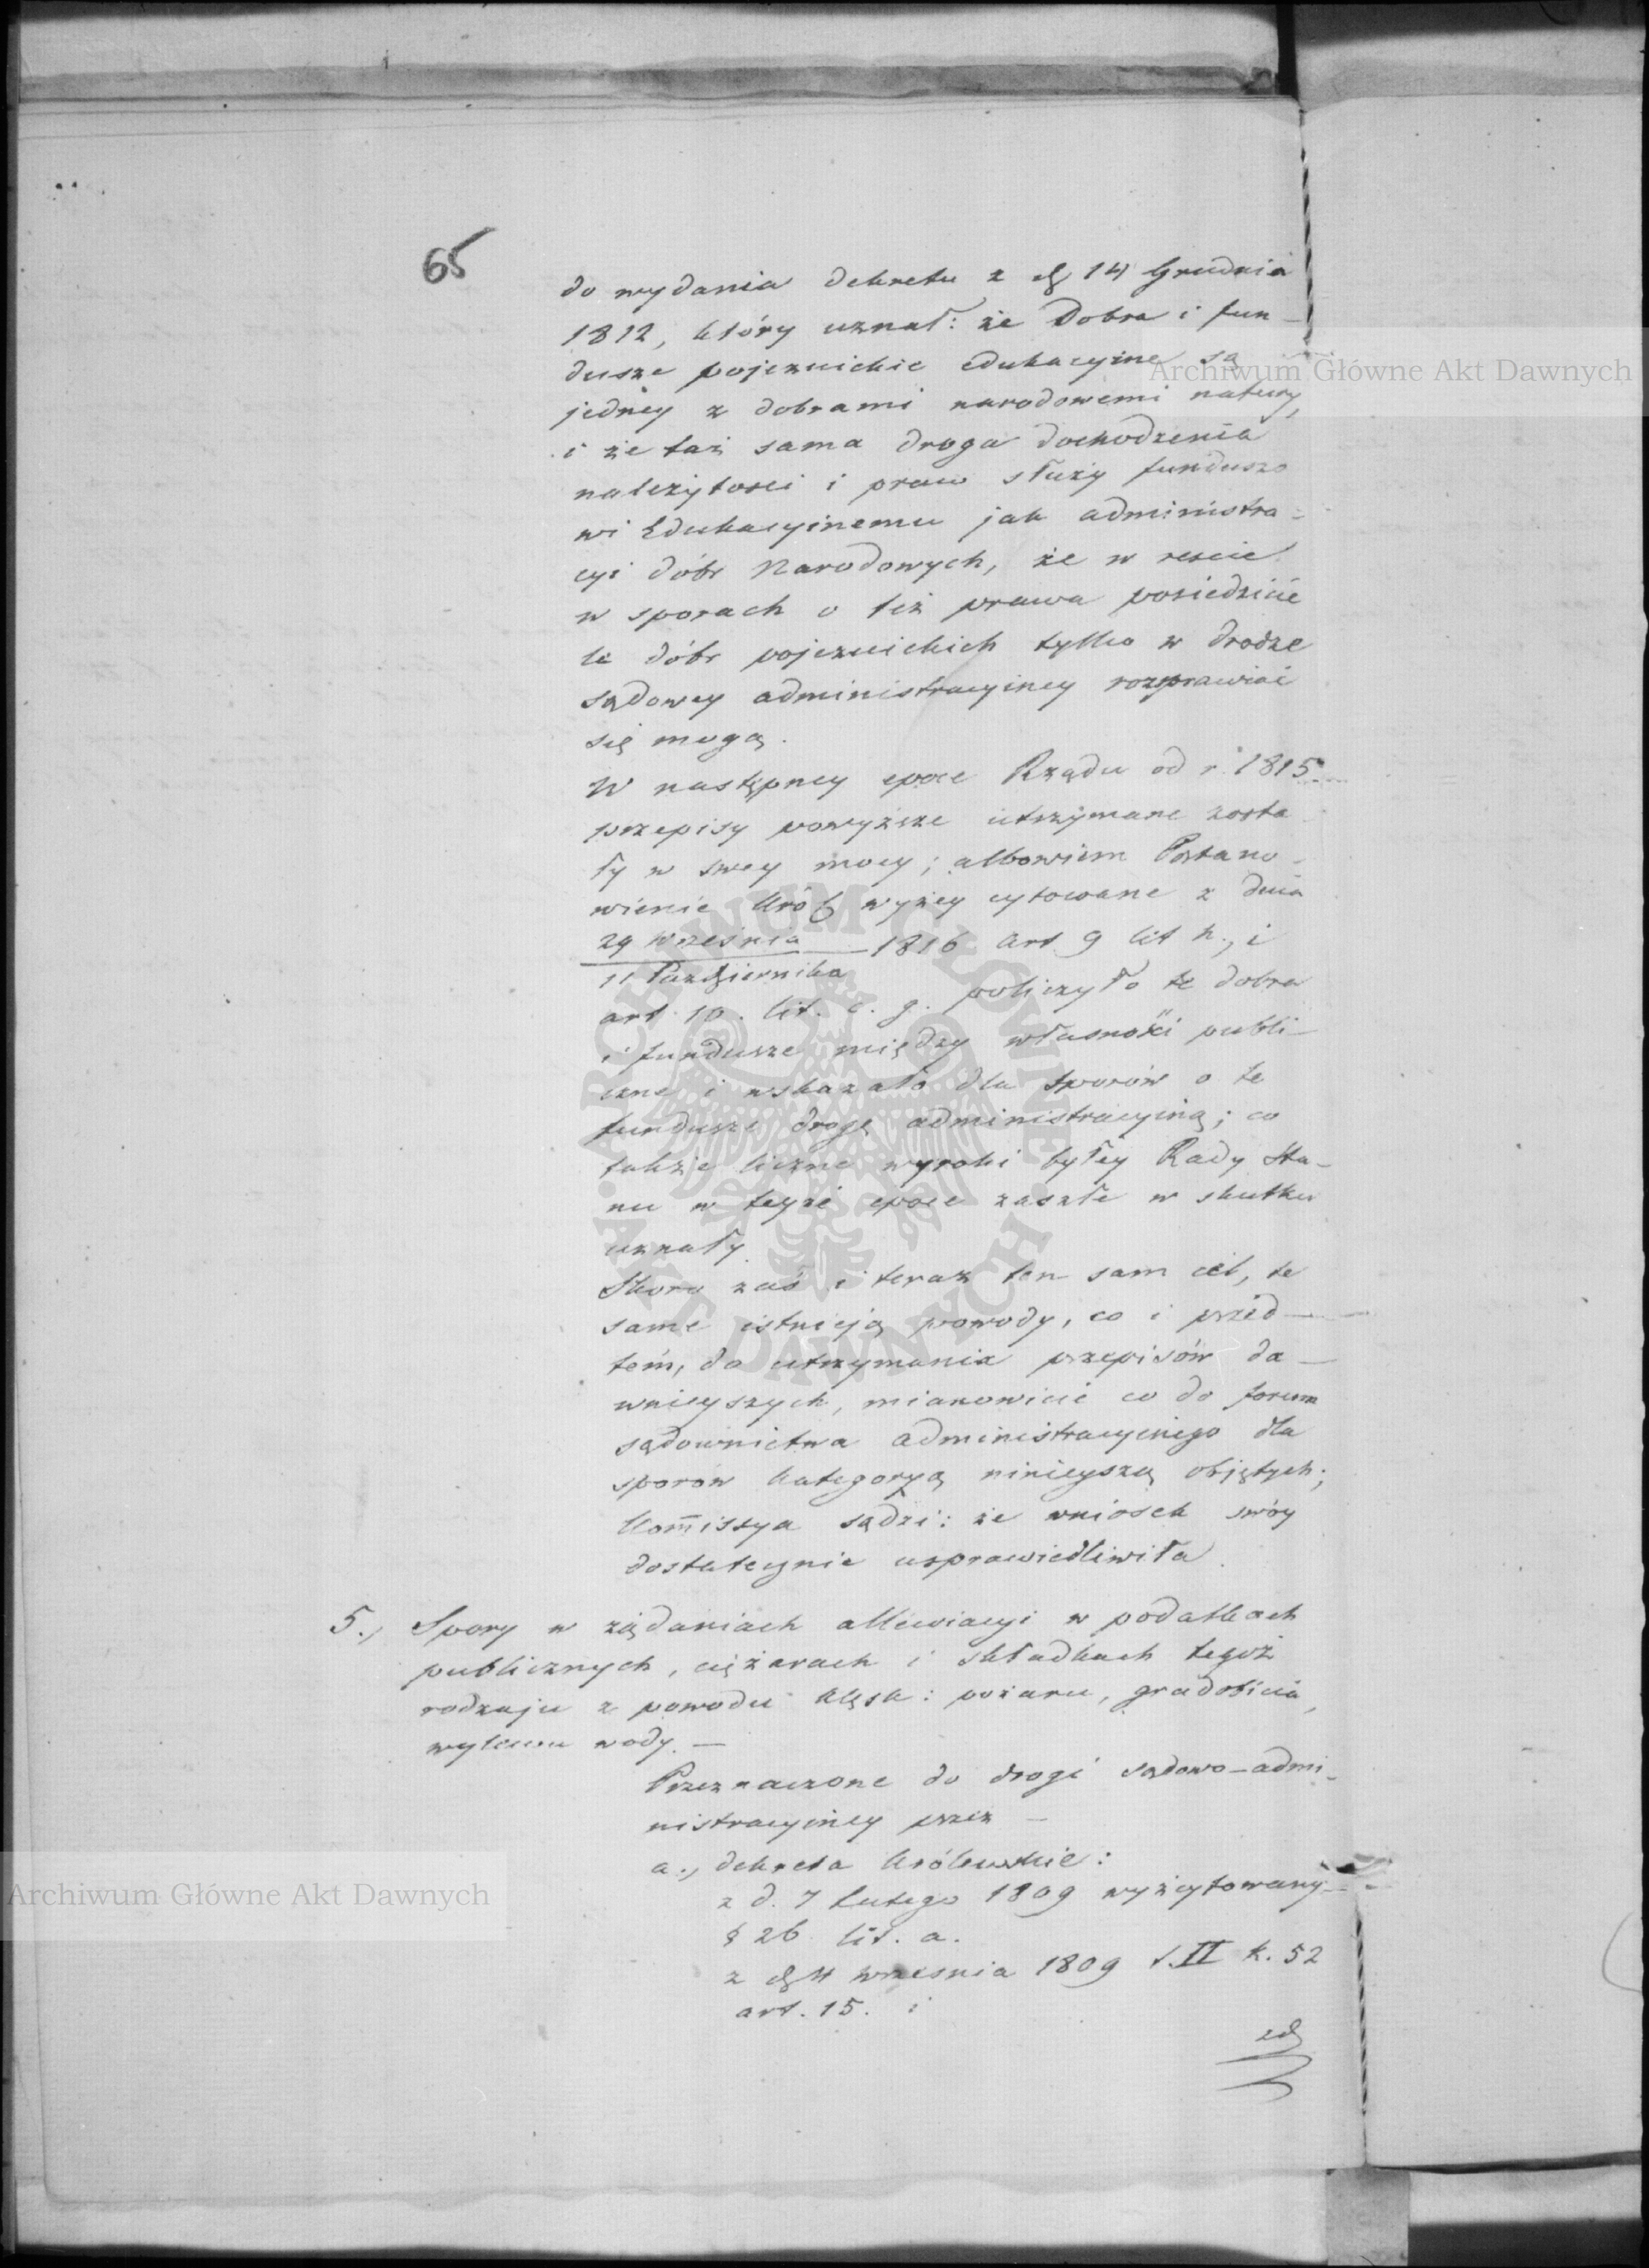 65
do wydania dekretu z d. 14 Grudnia
1812, który uznał: że Dobra i fun-
dusze pojezuickie edukacyine są
jedney z dobrami narodowemi natury,
i że taż sama droga dochodzenia
należytości i praw służy funduszo
wi Edukacyinemu jak administra-
cyi dóbr Narodowych, że w reście
w sporach o też prawa posiedzicie
le dóbr pojezuickich tylko w drodze
sądowey administracyiney rozprawiać
się mogą.
W następney epoce Rządu od r. 1815
przepisy powyższe utrzymane zosta
ły w swey mocy; albowiem Postano-
wienie Król. wyżey cytowane z dnia
29 Września
11 Października 1816 art 9 lit h., i
art. 10. lit. c. g. policzyło te dobra
i fundusze między własności publi-
czne i wskazało dla sporów o te
fundusze drogę administracyiną; co
także liczne wyroki byłey Rady Sta-
nu w teyże epoce zaszłe w skutku
uznały.
Skoro zaś i teraz ten sam cel, te
same istnieją powody, co i przed-
tem, do utrzymania przepisów da-
wnieyszych, mianowicie co do forum
sądownictwa administracyinego dla
sporów kategoryą ninieyszą objętych;
Kom̄issya sądzi: że wniosek swóy
dostatecznie usprawiedliwiła.
5., Spory w żądaniach allewiacyi w podatkach
publicznych, ciężarach i składkach tegoż
rodzaju z powodu klęsk: pożaru, gradobicia,
wylewu wody. —
Przeznaczone do drogi sądowo-admi-
nistracyiney przez —
a., dekreta Królewskie:
z d. 7 Lutego 1809 wyżcytowany
§ 26 lit. a.
z d. 4 września 1809 t. II k. 52
art. 15. i
zd
Archiwum Główne Akt Dawnych
Archiwum Główne Akt Dawnych
ARCHIWUM GŁÓWNE
AKT DAWNYCH